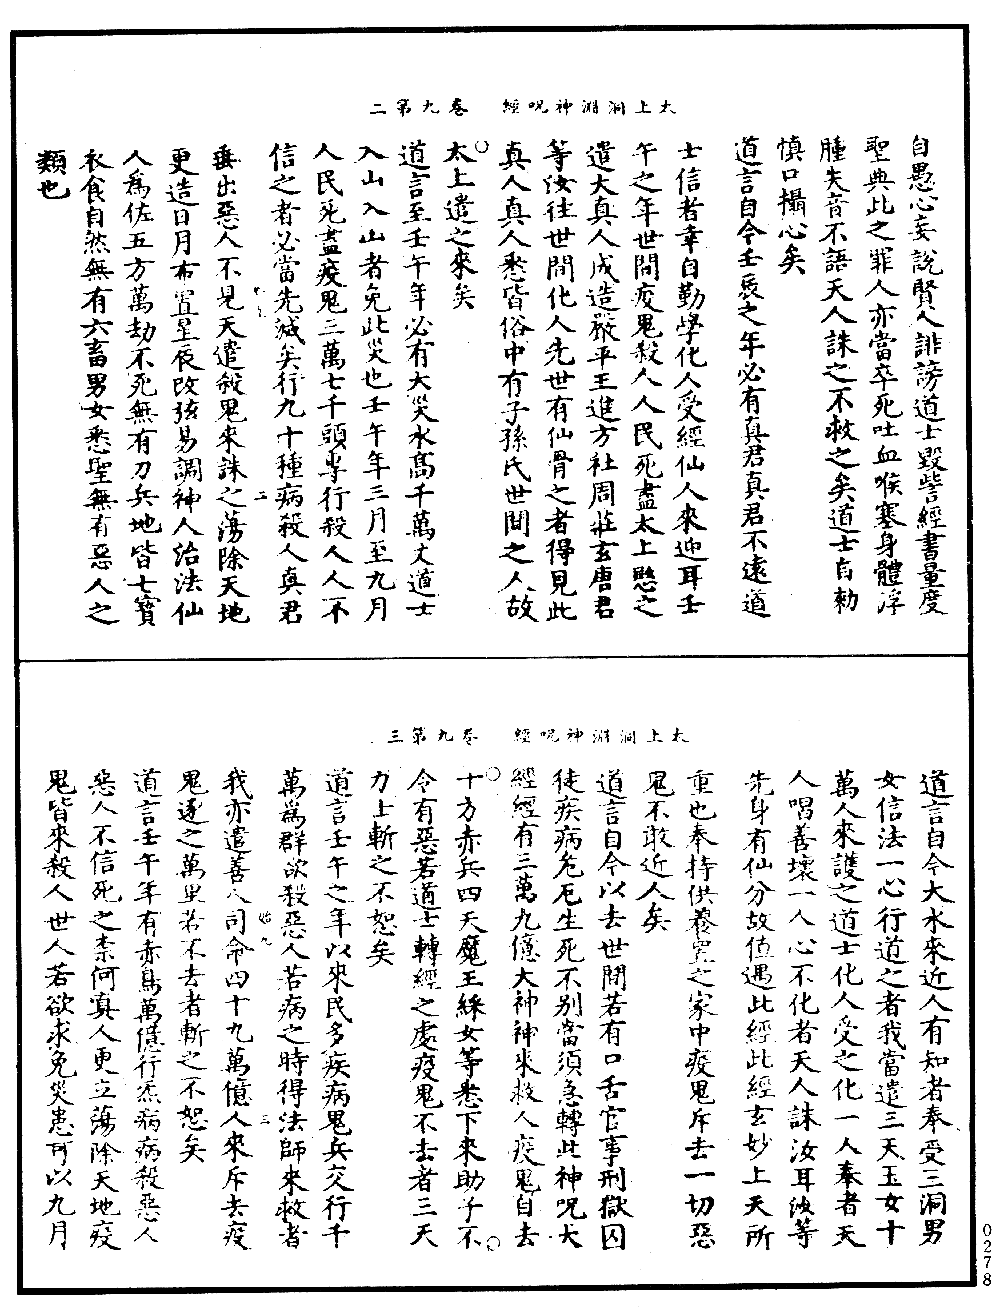 太上洞淵神呪經　卷九第二
自愚心妄說賢人誹謗道士毀訾經書量度
聖典此之罪人亦當卒死吐血喉塞身體浮
腫失音不語天人誅之不救之矣道士自勑
慎口攝心矣
道言自今壬辰之年必有真君真君不遠道
士信者幸自勤學化人受經仙人來迎耳壬
午之年世間疫鬼殺人人民死盡太上愍之
遣大真人成造嚴平王進方社周莊玄唐君
等汝往世間化人先世有仙骨之者得見此
真人真人悉皆俗中有子孫氏世間之人故
太上遣之來矣
道言至壬午年必有大災水高千萬丈道士
入山入山者免此災也壬午年三月至九月
人民死盡疫鬼三萬七千頭專行殺人人不
信之者必當先滅矣行九十種病殺人真君
垂出惡人不見天遣殺鬼來誅之蕩除天地
更造日月布置星辰改弦易調神人治法仙
人為佐五方萬劫不死無有刀兵地皆七寶
衣食自然無有六畜男女悉聖無有惡人之
類也
太上洞淵神呪經　卷九第三
道言自今大水來近人有知者奉受三洞男
女信法一心行道之者我當遣三天玉女十
萬人來護之道士化人受之化一人奉者天
人唱善壞一人心不化者天人誅汝耳汝等
先身有仙分故值遇此經此經玄妙上天所
重也奉持供養室之家中疫鬼斥去一切惡
鬼不敢近人矣
道言自今以去世間若有口舌官事刑獄囚
徒疾病危厄生死不別當須急轉此神呪大
經經有三萬九億大神神來救人疫鬼自去
十方赤兵四天魔王綵女等悉下來助子不
令有惡若道士轉經之處疫鬼不去者三天
力士斬之不恕矣
道言壬午之年以來民多疾病鬼兵交行千
萬為群欲殺惡人若病之時得法師來救者
我亦遣善人司命四十九萬億人來斥去疫
鬼逐之萬里若不去者斬之不恕矣
道言壬午年有赤鳥萬億行炁病病殺惡人
惡人不信死之柰何真人更立蕩除天地疫
鬼皆來殺人世人若欲求免災患可以九月
0278